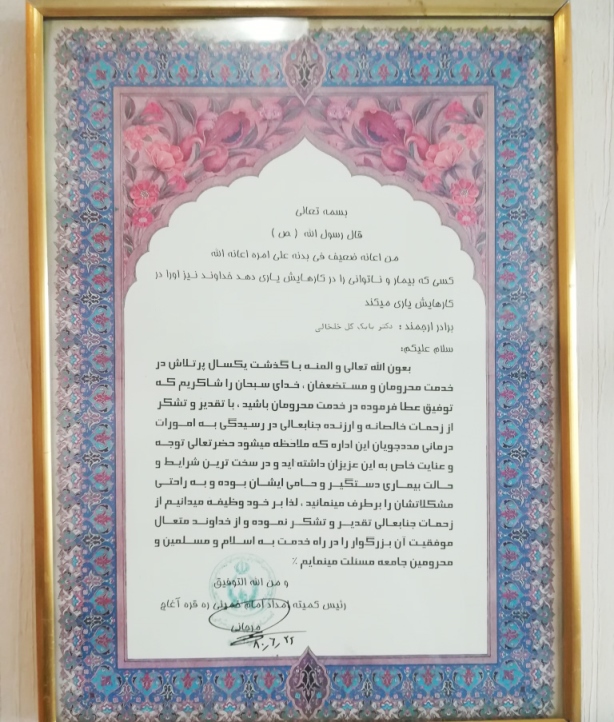 بسمه تعالی
قال رسول الله ( ص )
من اعانه ضعیف فی بدنه علی امره اعانه الله
کسی که بیمار و ناتوانی را در کارهایش یاری دهد خداوند نیز اورا در
کارهایش یاری میکند
برادر ارجمند : دکتر بابک گل خلخالی
سلام علیکم:
بعون الله تعالی و المنه با گذشت یکسال پر تلاش در
خدمت محرومان و مستضعفان ، خدای سبحان را شاکریم که
توفیق عطا فرموده در خدمت محرومان باشید ، با تقدیر و تشکر
از زحمات خالصانه و ارزنده جنابعالی در رسیدگی به امورات
درمانی مددجویان این اداره که ملاحظه میشود حضرتعالی توجه
و عنایت خاص به این عزیزان داشته اید و در سخت ترین شرایط و
حالت بیماری دستگیر و حامی ایشان بوده و به راحتی
مشکلاتشان را برطرف مینمائید ، لذا بر خود وظیفه میدانیم از
زحمات جنابعالی تقدیر و تشکر نموده و از خداوند متعال
موفقیت آن بزرگوار را در راه خدمت به اسلام و مسلمین و
محرومین جامعه مسئلت مینمایم ٪
و من الله التوفیق
رئیس کمیته امداد امام خمینی ره قره آغاج
۸۰٫۶٫۲۲